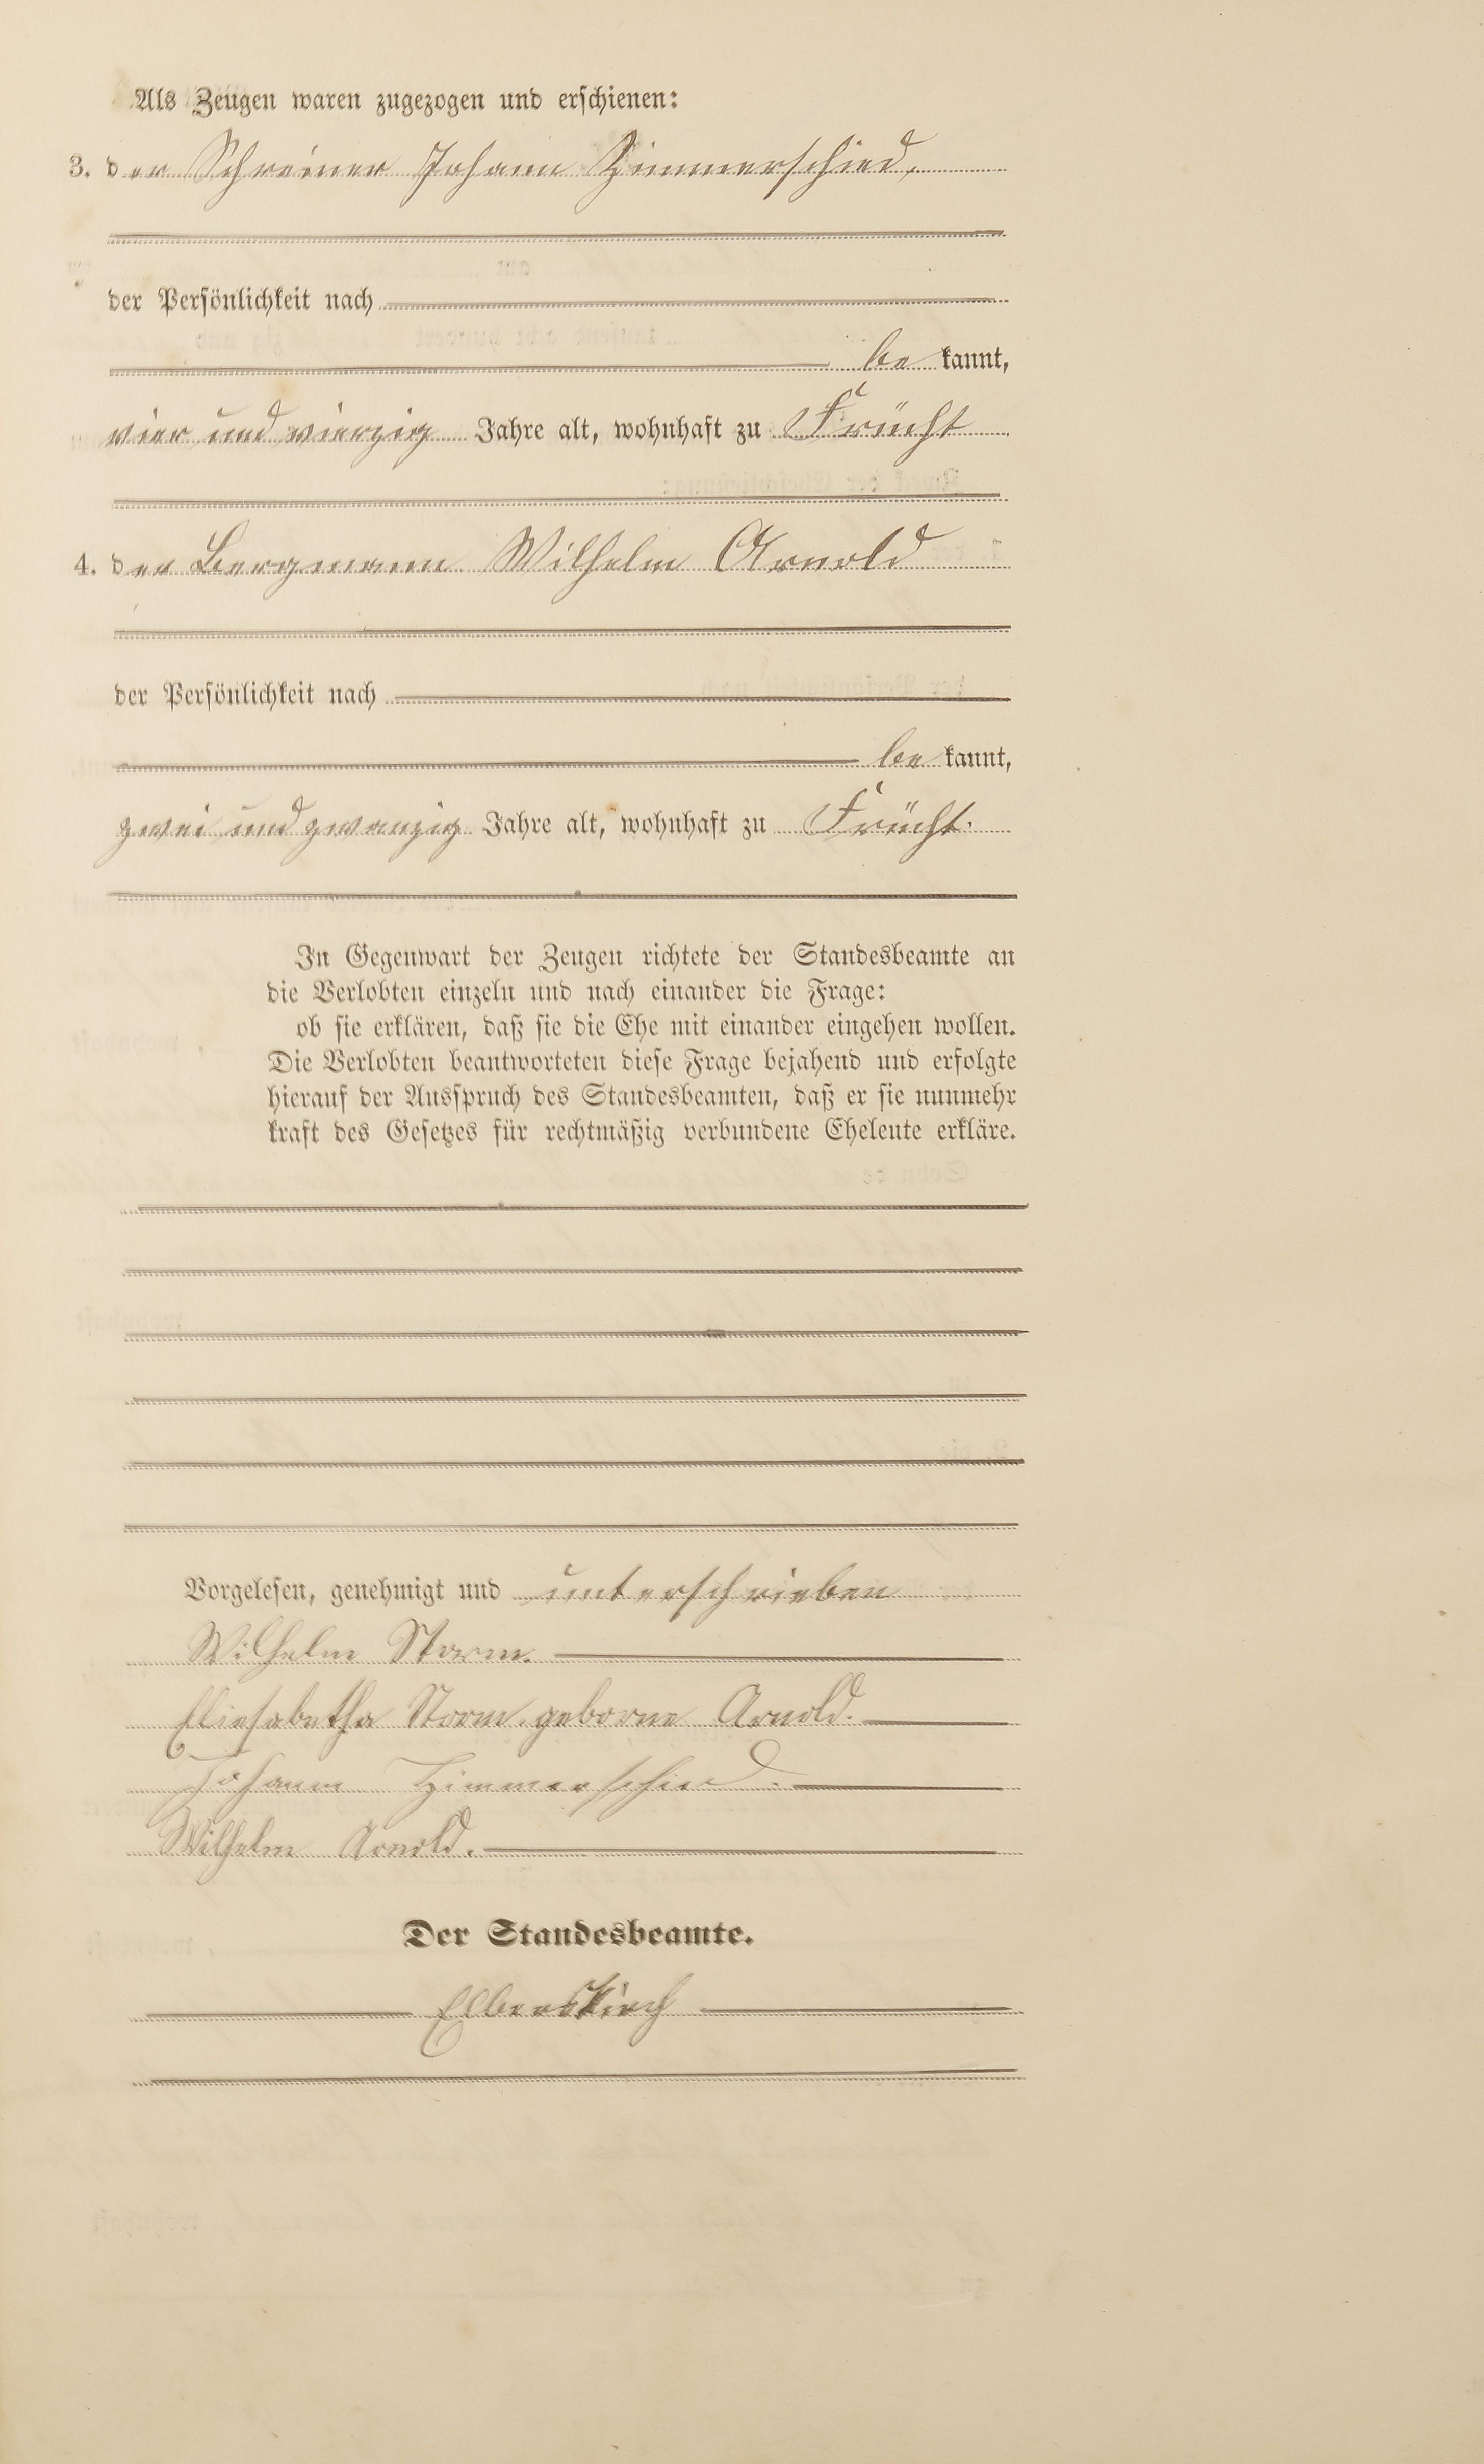 Als Zeugen waren zugezogen und erschienen:
3. der Schreiner Johann Zimmerschied,
der Persönlichkeit nach
be kannt,
vier und vierzig Jahre alt, wohnhaft zu Frücht
4. der Bergmann Wilhelm Arnold
der Persönlichkeit nach
be kannt,
zwei und zwanzig Jahre alt, wohnhaft zu Frücht.
In Gegenwart der Zeugen richtete der Standesbeamte an
die Verlobten einzeln und nach einander die Frage:
ob sie erklären, daß sie die Ehe mit einander eingehen wollen.
Die Verlobten beantworteten diese Frage bejahend und erfolgte
hierauf der Ausspruch des Standesbeamten, daß er sie nunmehr
kraft des Gesetzes für rechtmäßig verbundene Eheleute erkläre.
Vorgelesen, genehmigt und unterschrieben
Wilhelm Storm.
Eliesabetha Storm. geborne Arnold.
Johann Zimmerschied.
Wilhelm Arnold.
Der Standesbeamte.
Elberskirch